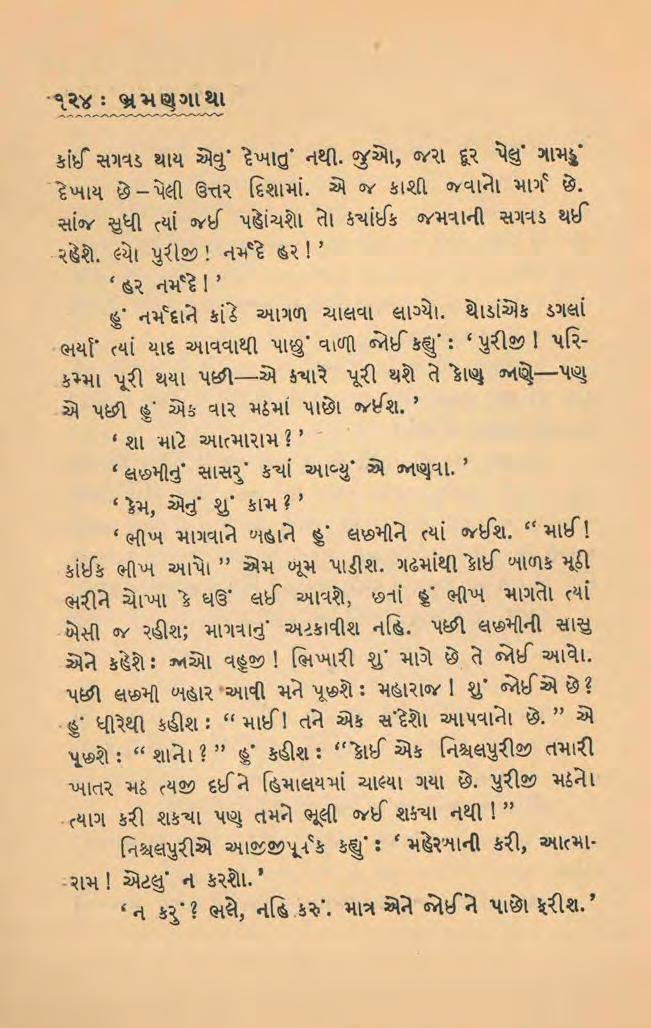 ૧૨૪ : ભ્રમણગાથા
કાંઈ સગવડ થાય એવું દેખાતું નથી. જુઓ, જરા દૂર પેલું ગામડું
દેખાય છે – પેલી ઉત્તર દિશામાં. એ જ કાશી જવાનો માર્ગ છે.
સાંજ સુધી ત્યાં જઈ પહોંચશો તો કયાંઈક જમવાની સગવડ થઈ
રહેશે. લ્યો પુરીજી ! નર્મદે હર ! ’
‘ હર નર્મદે ! ’
હું નર્મદાને કાંઠે આગળ ચાલવા લાગ્યો. થોડાંએક ડગલાં
ભર્યાં ત્યાં યાદ આવવાથી પાછું વાળી જોઈ કહ્યું : ‘ પુરીજી ! પરિ-
કમ્મા પૂરી થયા પછી—એ કયારે પૂરી થશે તે કોણ જાણે—પણ
એ પછી હું એક વાર મઠમાં પાછો જઈશ. ’
‘ શા માટે આત્મારામ ? ’
‘ લછમીનું સાસરું કયાં આવ્યું એ જાણવા. ’
‘ કેમ, એનું શું કામ ? ’
‘ ભીખ માગવાને બહાને હું લછમીને ત્યાં જઈશ. “ માઈ !
કાંઈક ભીખ આપો ” એમ બૂમ પાડીશ. ગઢમાંથી કોઈ બાળક મૂઠી
ભરીને ચોખા કે ઘઉં લઈ આવશે, છતાં હું ભીખ માગતો ત્યાં
બેસી જ રહીશ; માગવાનું અટકાવીશ નહિ. પછી લછમીની સાસુ
એને કહેશે : જાઓ વહૂજી ! ભિખારી શું માગે છે તે જોઈ આવો.
પછી લછમી બહાર આવી મને પૂછશે : મહારાજ ! શું જોઈએ છે ?
હું ધીરેથી કહીશ : “ માઈ ! તને એક સંદેશો આપવાનો છે. ” એ
પૂછશે : “ શાનો ? ” હું કહીશ : “ કોઈ એક નિશ્ચલપુરીજી તમારી
ખાતર મઠ ત્યજી દઈને હિમાલયમાં ચાલ્યા ગયા છે. પુરીજી મઠનો
ત્યાગ કરી શકયા પણ તમને ભૂલી જઈ શકયા નથી ! ”
નિશ્ચલપુરીએ આજીજીપૂર્વક કહ્યું : ‘ મહેરબાની કરી, આત્મા-
રામ ! એટલું ન કરશો. ’
‘ ન કરું ? ભલે, નહિ કરું. માત્ર એને જોઈને પાછો ફરીશ. ’